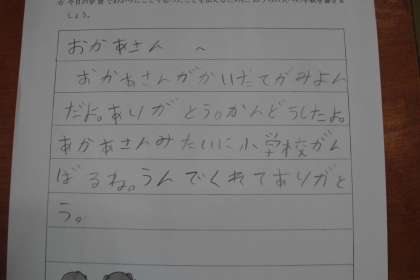 しょう。
おかあさん へ
おかあさんがかいたてがみよん
だよ。ありがとう。かんどうしたよ。
おかあさんみたいに小学校がん
ばるね。うんでくれてありがと
う。